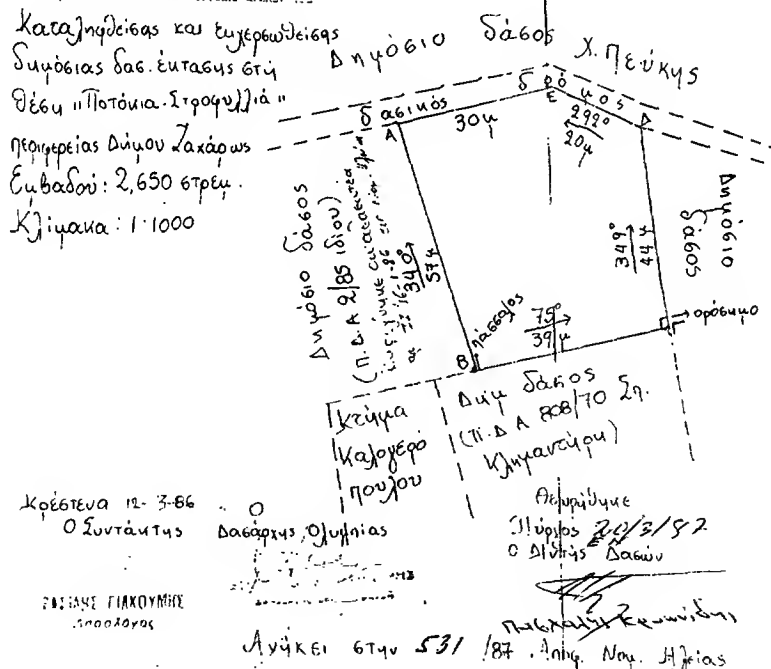 Καταληφθείσας και Εκχερσωθείσας
δημόσιας δασ. έκτασης στή
Θέση "Ποτόκια-Στροφυλλιά"
περιφερείας Δήμου Ζαχάρως
Εμβαδού: 2,650 στρεμ.
Κλίμακα: 1:1000
Δημόσιο δάσος Χ. Πεύκης
δασικός δρόμος
Α
30μ
Ε
292°
20μ
Δ
Δημόσιο δάσος
(Π.Δ.Α 2/85 ιδίου)
340°
57μ
349°
44μ
Δημόσιο
δάσος
Β
πάσσαλος
75°
39μ
Γ
ορόσημο
κτήμα
Καλογερό
πουλου
Δημ δάσος
(Π.Δ Α 808/70 Ση.
Κλημαντήρη)
Κρέστενα 12-3-86
Ο Συντάκτης
ΓΙΑΚΟΥΜΗΣ
Δασολόγος
Ο
Δασάρχης Ολυμπίας
Θεωρήθηκε
Πύργος 20/3/87
Ο Δ/ντής Δασών
Ανήκει στην 531/87 Νομ. Ηλείας